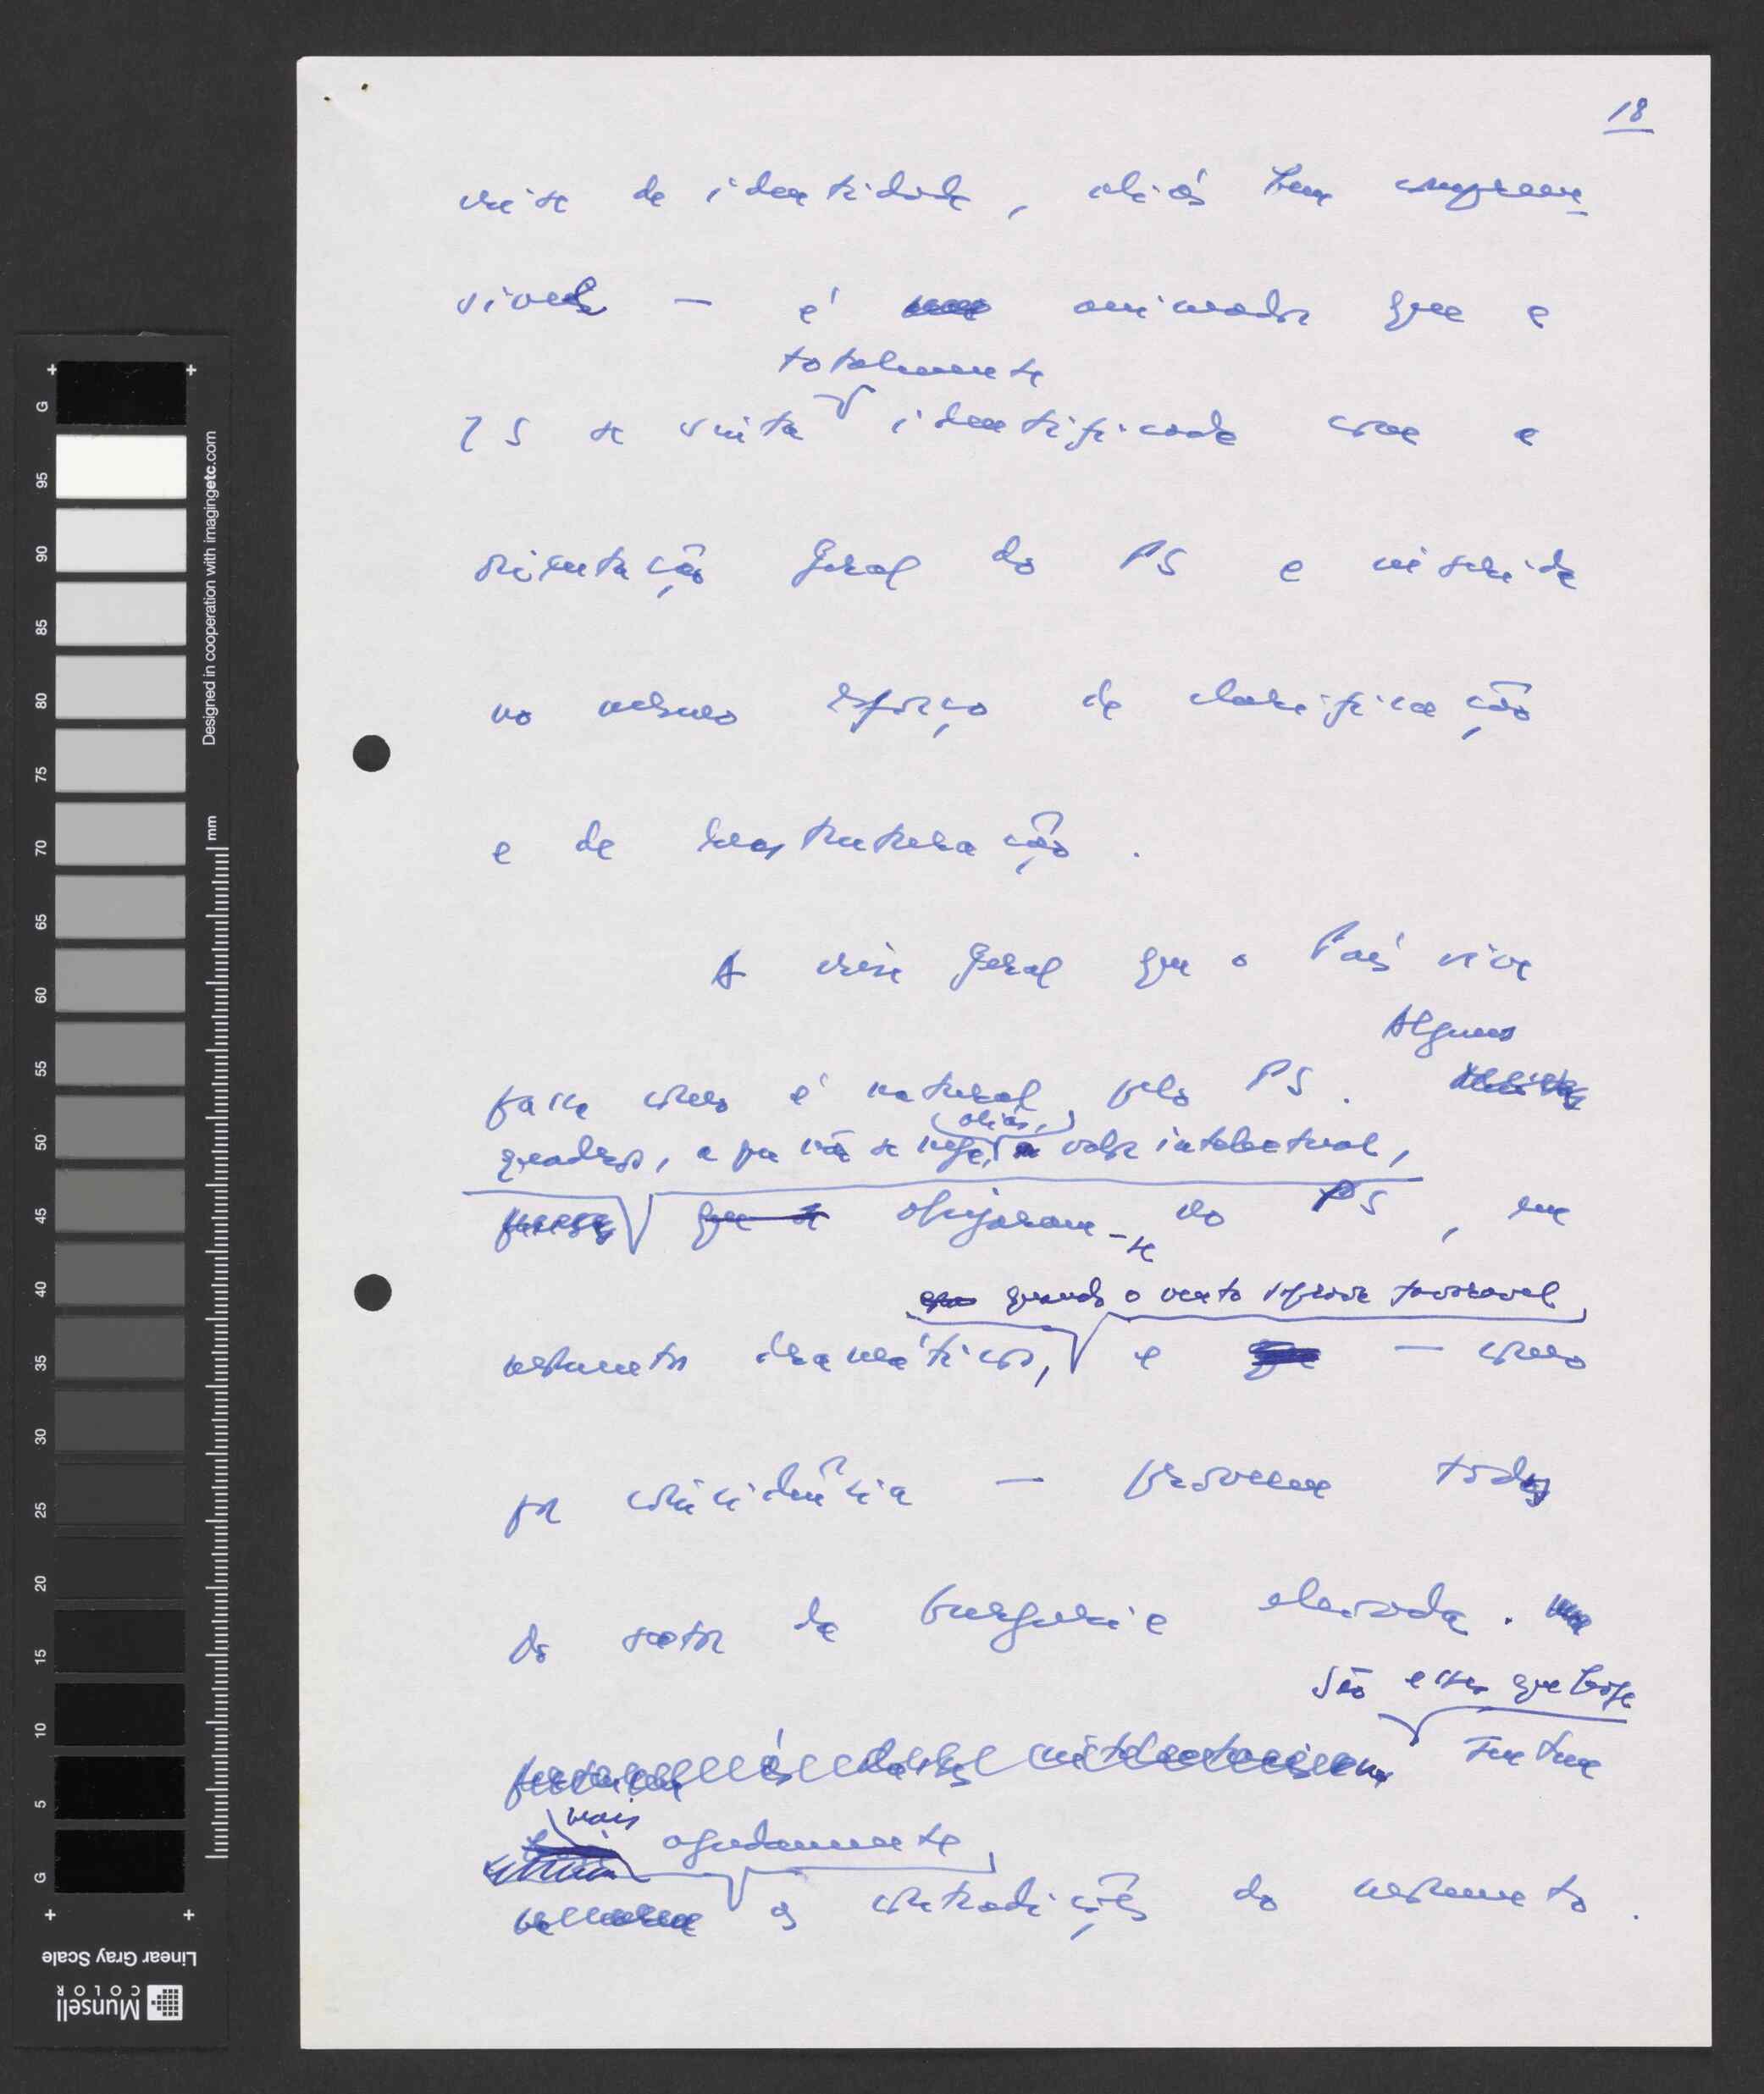 18
crise de identidade, aliás bem compreen-
sível — é animador que a
totalmente
JS se sinta identificada com a
orientação geral do PS e inserida
no mesmo esforço de clarificação
e de reestruturação.
A crise geral que o País vive
Alguns
passa como é natural pelo PS.
(aliás,)
quadros, a que não se nega, o valor intelectual,
que se afastaram-se do PS, em
quando o vento soprava favorável
momentos dramáticos, e — como
por coincidência — provem todos
do sector da burguesia elevada.
São esses que hoje
intelectuais sentem
mais
agudamente
as contradições do momento.
G
95
90
85
80
75
70
65
60
55
50
45
40
35
30
25
20
15
10
5
G
mm
Designed in cooperation with imagingetc.com
Linear Gray Scale
Munsell
COLOR